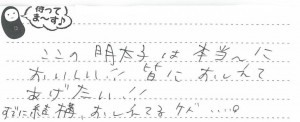 待ってま〜す♪
ここの明太子は本当〜に
おいしいい!! 皆におしえて
あげたい!!
すでに結構、おしえてるケド……。